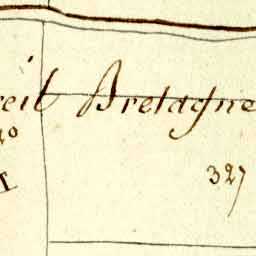 reil Bretagne
20
327